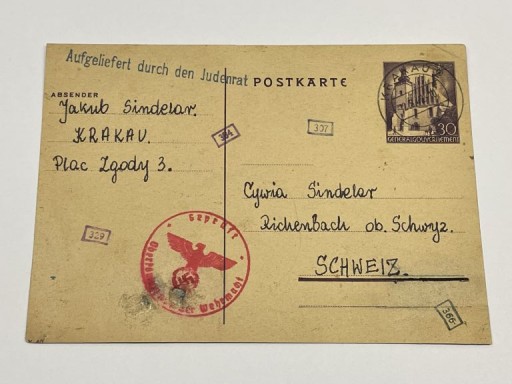 Aufgeliefert durch den Judenrat
POSTKARTE
ABSENDER
Jakub Sindelar.
KRAKAU.
Plac Zgody 3.
KRAKAU 2
30
GENERALGOUVERNEMENT
394
307
Cywia Sindelar
Richenbach ob. Schwyz.
SCHWEIZ.
329
Geprüft
der Wehrmacht
366